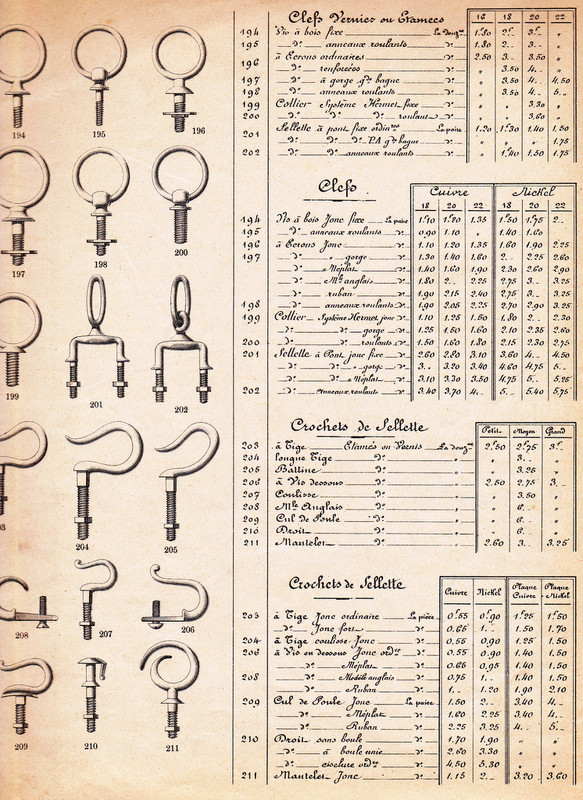 Clefs Vernies ou Étamées 16 18 20 22
194 Vis à bois fixe La douz.ne 1.80 2f. 3f. "
195 _d°_ anneaux roulants d° 1.80 2. 3. "
196 à Écrous ordinaires d° 2.50 3. 3.50 "
_d°_ renforcées d° " 3.50 4. "
197 _d°_ à gorge g.de bague d° " 3.50 4. 4.50
198 _d°_ anneaux roulants d° " 3.50 4. 5.
199 Collier Système Hermet fixe d° " " 3.30 "
200 d° d° d° roulant d° " " 3.60 "
201 Sellette à pont fixe ordin.re La paire 1.20 1.30 1.40 1.50
d° d° d° g.de bague d° " " " 1.75
202 d° d° anneaux roulants d° " 1.40 1.50 1.75
194
195
196
Clefs
Cuivre Nickel
18 20 22 18 20 22
194 Vis à bois Jonc fixe La paire 1.10 1.20 1.35 1.50 1.75 2.
195 d° anneaux roulants d° 0.90 1.10 " 1.40 1.60
196 à Écrous Jonc d° 1.10 1.20 1.35 1.60 1.90 2.25
197 d° " gorge d° 1.30 1.40 1.60 2. 2.25 2.60
d° " Méplat d° 1.40 1.60 1.90 2.30 2.60 2.90
d° " M.le anglais d° 1.80 2. 2.25 2.75 3. 3.25
d° " ruban d° 1.90 2.15 2.40 2.75 3. 3.25
198 d° anneaux roulants d° 1.90 2.05 2.25 2.70 2.90 3.25
199 Collier Système Hermet jonc d° 1.10 1.25 1.50 1.80 2. 2.30
d° d° gorge d° 1.25 1.50 1.60 2.10 2.35 2.60
200 d° d° roulants d° 1.50 1.60 1.80 2.15 2.30 2.75
201 Sellette à Pont jonc fixe d° 2.60 2.80 3.10 3.60 4. 4.50
d° d° " gorge d° 3. 3.20 3.40 4.60 4.75 5.
d° d° " Méplat d° 3.10 3.30 3.50 4.75 5. 5.25
202 d° d° anneaux roulants d° 3.40 3.70 4. 5. 5.40 5.75
197
198
200
199
201
202
Crochets de Sellette
Petit Moyen Grand
203 à Tige Étamés ou Vernis La douz.ne 2f.50 2f.75 3f.
204 longue Tige d° " 3. "
205 Battine d° " 3.25 "
206 à Vis dessous d° 2.50 2.75 3.
207 Coulisse d° " 3.50 "
208 M.le Anglais d° " 6. "
209 Cul de Poule d° " 6. "
210 Droit d° " 6. "
211 Mantelet d° 2.60 3. 3.25
204
205
Crochets de Sellette
Cuivre Nickel Plaqué Cuivre Plaqué Nickel
203 à Tige Jonc ordinaire La pièce 0f.55 0f.90 1f.25 1f.50
d° Jonc fort d° 0.65 1. 1.50 1.70
204 à Tige coulisse Jonc d° 0.55 0.90 1.25 1.50
206 à Vis en dessous Jonc ord.re d° 0.55 0.90 1.40 1.50
d° Méplat d° 0.65 0.95 1.40 1.50
208 d° Modèle anglais d° 0.75 1. 1.40 1.50
d° Ruban d° 1. 1.20 1.90 2.10
209 Cul de Poule Jonc La paire 1.50 2. 3.40 4.
d° Méplat d° 1.60 2.25 3.40 4.
d° Ruban d° 2.25 3.25 4. 5.
210 Droit sans boule d° 1.70 1.90 " "
d° à boule unie d° 2.60 3.30 " "
d° ciselure ord.re d° 4.50 5.30 " "
211 Mantelet Jonc d° 1.15 2. 3.20 3.60
208
207
206
209
210
211